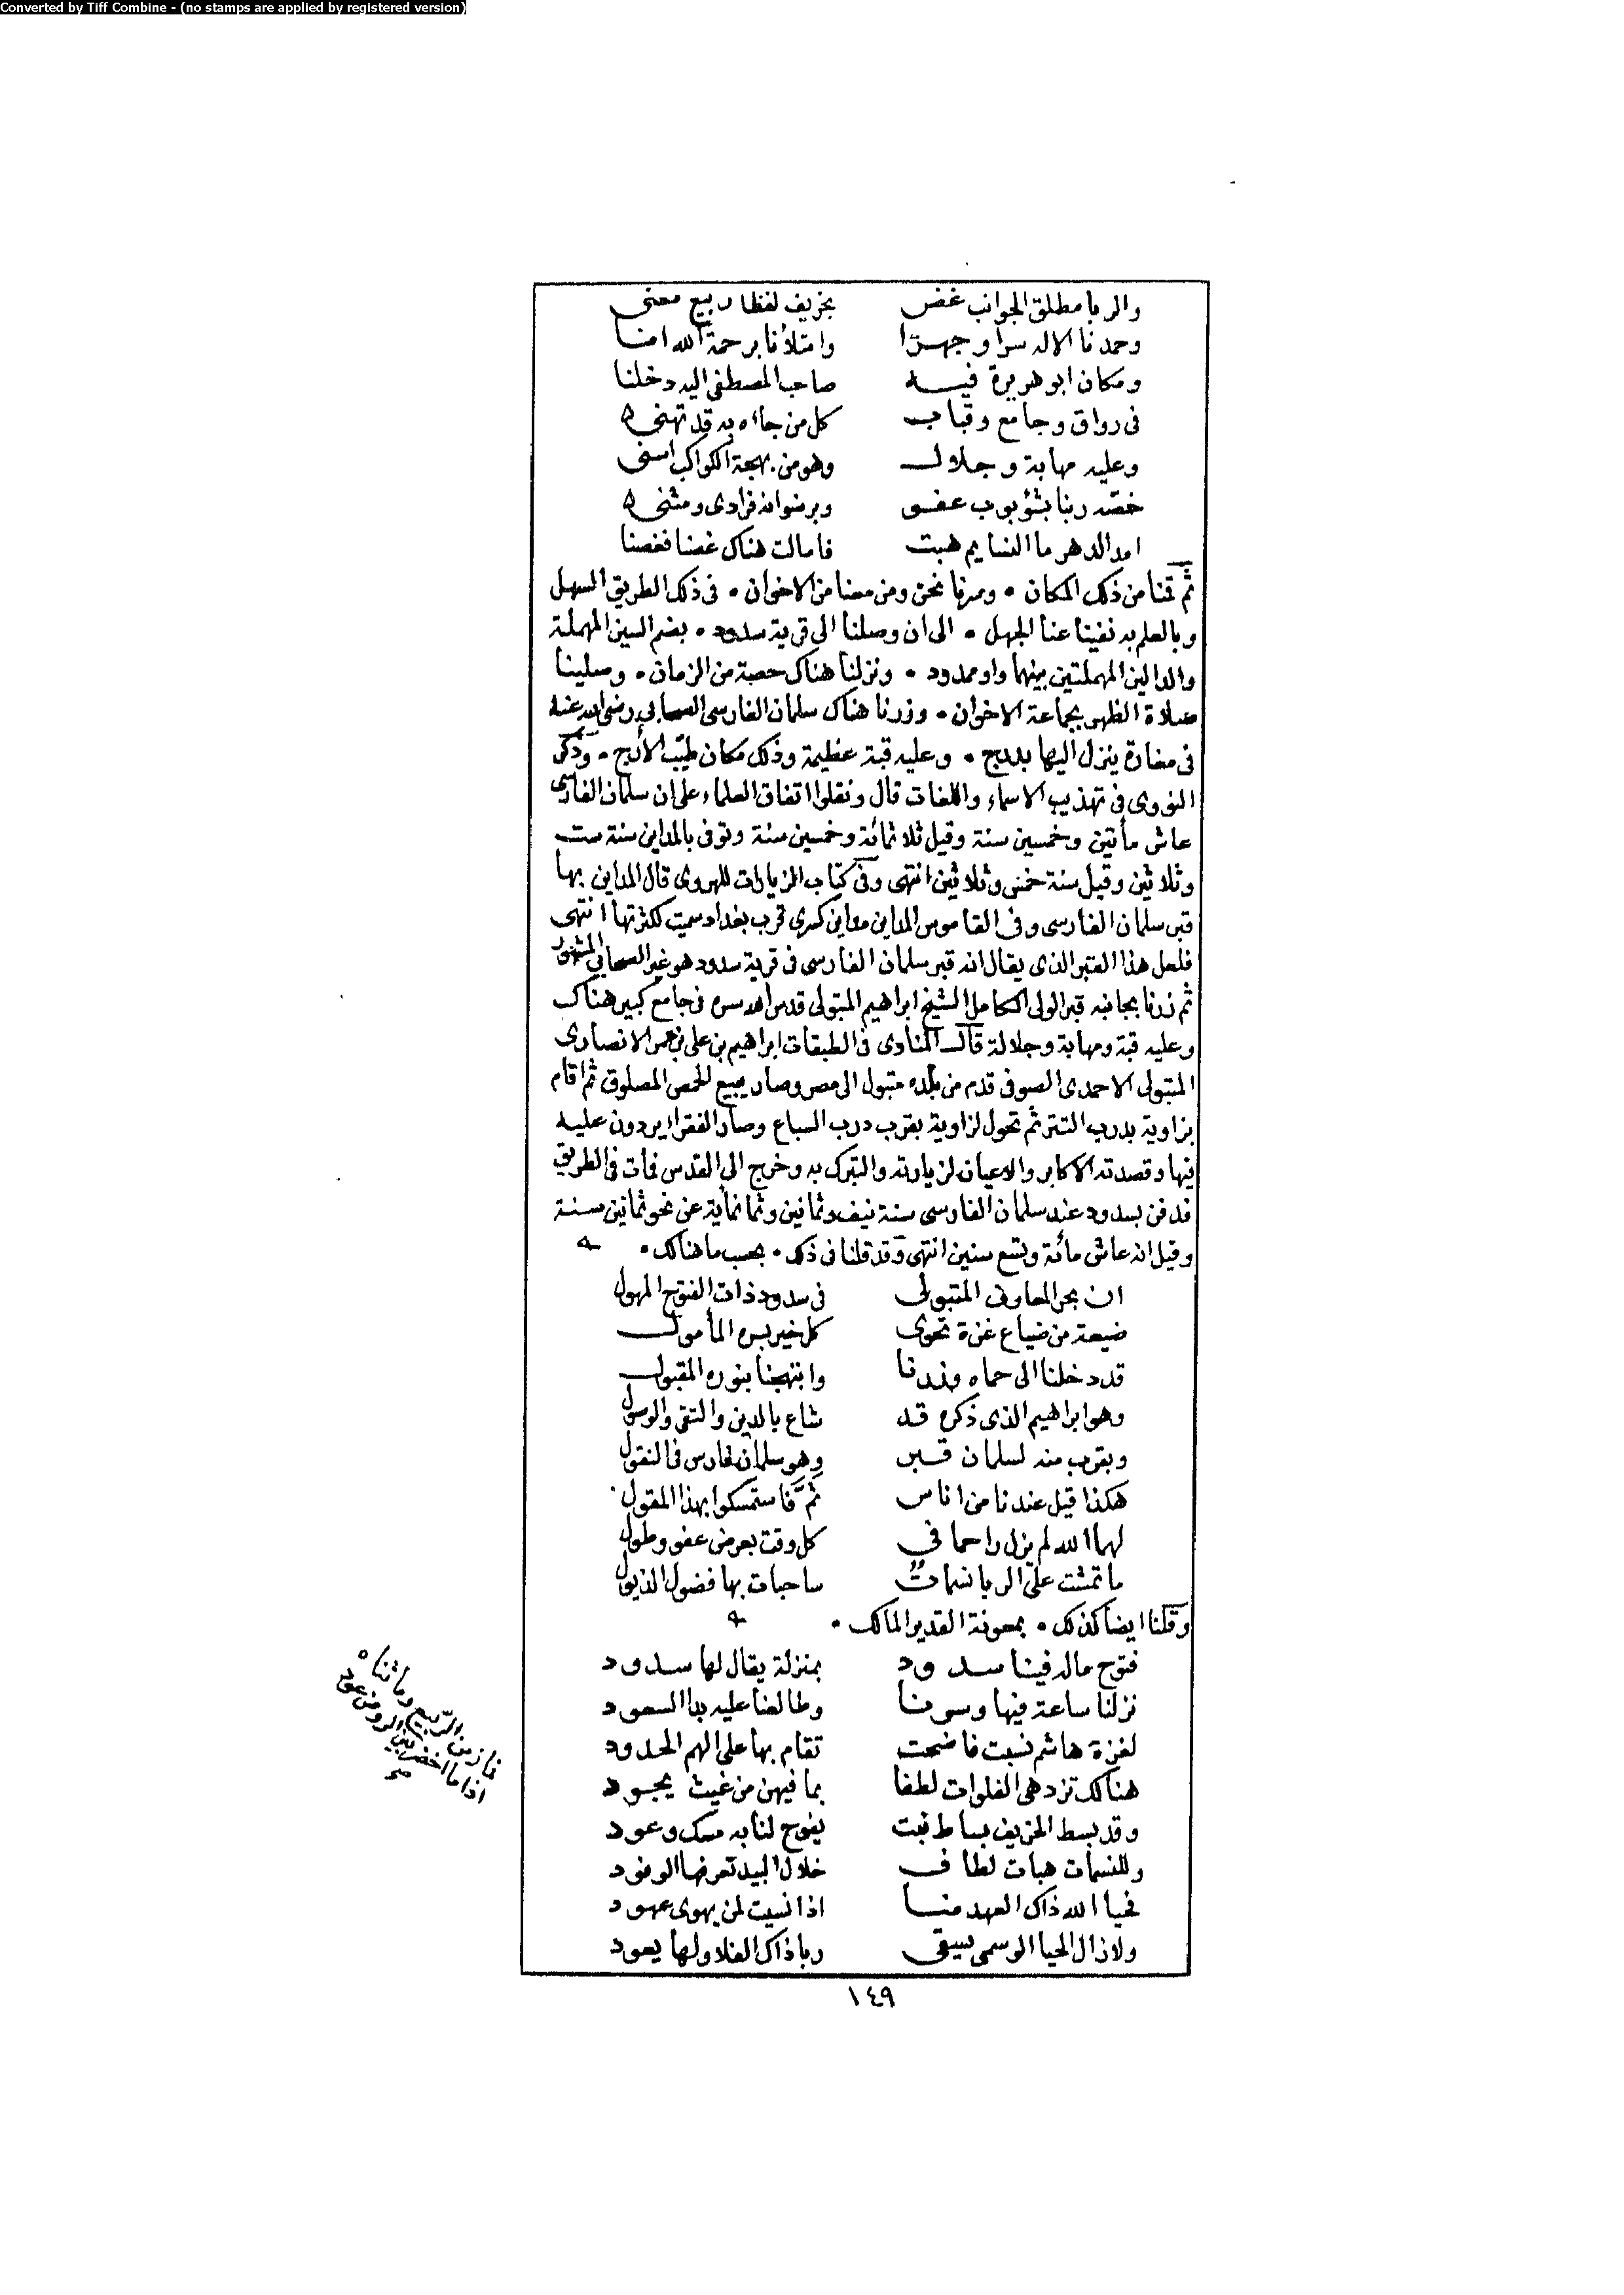 Converted by Tiff Combine - (no stamps are applied by registered version)
والربا مطلق الجوانب غض بخريف لفظا ربيع معنى
وحمدنا الاله سرا وجهرا وامتلأنا برحمة الله امنا
ومكان ابو هريرة فيه صاحب المصطفى اليه دخلنا
فى رواق وجامع وقباب كل من جاءه به قد تهنى
وعليه مهابة وجلال وهو من بهجة الكواكب اسنى
خصه ربنا بشؤبوب عفو وبرضوانه فرادى ومثنى
امد الدهر ما النسايم هبت فامالت هناك غصنا فغصنا
ثم قمنا من ذلك المكان • وسرنا نحن ومن معنا من الاخوان • فى ذلك الطريق السهل
وبالعلم به نفينا عنا الجهل • الى ان وصلنا الى قرية سدود • بضم السين المهملة
والدالين المهملتين بينهما واو ممدود • ونزلنا هناك حصة من الزمان • وصلينا
صلاة الظهر بجماعة الاخوان • وزرنا هناك سلمان الفارسى الصحابي رضى الله عنه
فى مغارة ينزل اليها بدرج • وعليه قبة عظيمة وذلك مكان طيّب الأرج • وذكر
النووى فى تهذيب الاسماء واللغات قال ونقلوا اتفاق العلماء على ان سلمان الفارسى
عاش مأتين وخمسين سنة وقيل ثلاثمائة وخمسين سنة وتوفى بالمداين سنة ست
وثلاثين وقيل سنة خمس وثلاثين انتهى وفى كتاب الزيارات للهروى قال المداين بها
قبر سلمان الفارسى وفى القاموس المداين مداين كسرى قرب بغداد سميت لكثرتها انتهى
فلعل هذا القبر الذى يقال انه قبر سلمان الفارسى فى قرية سدود هو غير الصحابي المشهور
ثم زرنا بجانبه قبر الولى الكامل الشيخ ابراهيم المتبولى قدس الله سره فى جامع كبير هناك
وعليه قبة ومهابة وجلالة قال المناوى فى الطبقات ابراهيم بن على بن عمر الانصارى
المتبولى الاحمدى الصوفى قدم من بلده متبول الى مصر وصار يبيع الحمص المصلوق ثم اقام
بزاوية بدرب التتر ثم تحول لزاوية بقرب درب السباع وصار الفقراء يردون عليه
فيها وقصدته الاكابر والاعيان لزيارته والتبرك به وخرج الى القدس فمات فى الطريق
فدفن بسدود عند سلمان الفارسى سنة نيف وثمانين وثمانمأية عن نحو ثمانين سنة
وقيل انه عاش مائة وتسع سنين انتهى وقد قلنا فى ذلك • بحسب ما هنالك •
ان بحر المعارف المتبولى فى سدود ذات الفتوح المهول
ضيعة من ضياع غزة تحوى كل خير بسره المأمول
قد دخلنا الى حماه وزرنا وابتهجنا بنوره المقبول
وهو ابراهيم الذى ذكره قد شاع بالدين والتقى والوصول
وبقرب منه لسلمان قبر وهو سلمان فارس فى النقول
هكذا قيل عندنا من اناس ثمّ فاستمسكوا بهذا المقول
لهما الله لم يزل راحما فى كل وقت بعرض عفو وطول
ما تمشت على الربا نسمات ساحبات بها فضول الذيول
وقلنا ايضا كذلك • بمعونة القدير المالك •
فتوح ماله فينا سدود بمنزلة يقال لها سدود
نزلنا ساعة فيها وسرنا وطالعنا عليه بدا السعود
لغزة هاشم نسبت فاضحت تقام بها على الهم الحدود
هنالك تزدهى الفلوات لطفا بما فيهن من غيث يجود
وقد بسط الخريف بساط نبت يفوح لنا به مسك وعود
وللنسمات هبات لطاف خلال البيد تعرفها الوفود
فحيا الله ذاك العهد منا اذا نسيت لمن يهوى عهود
ولا زال الحيا الوسمى يسقى ربا ذاك الفلا ولها يعود
فما زمن الربيع وما ثناه
اذا ما اخضر بين الروض عود
١٤٩